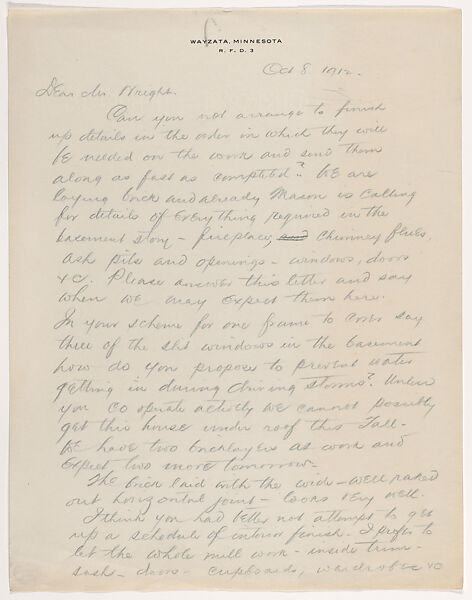 WAYZATA, MINNESOTA
R. F. D. 3
Oct 8. 1912.
Dear Mr. Wright.
Can you not arrange to finish
up details in the order in which they will
be needed on the work and send them
along as fast as completed? We are
laying brick and already Mason is calling
for details of everything required in the
basement story - fireplace, and chimney flues,
ash pits and openings - windows, doors
&c. Please answer this letter and say
when we may expect them here.
In your scheme for one frame to cover say
three of the slit windows in the basement
how do you propose to prevent water
getting in during driving storms? Unless
you cooperate actively we cannot possibly
get this house under roof this Fall -
We have two bricklayers at work and
expect two more tomorrow -
The brick laid with the wide - well raked
out horizontal joint - looks very well.
I think you had better not attempt to get
up a schedule of interior finish. I prefer to
let the whole mill work - inside trim -
sash - doors - cupboards, wardrobes &c